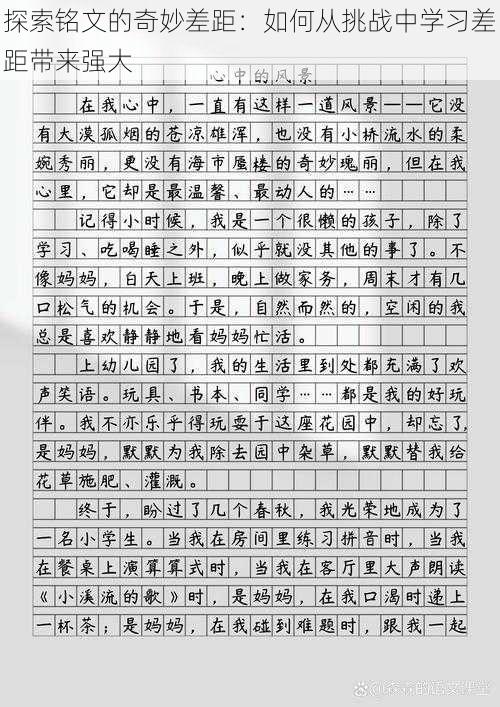 探索铭文的奇妙差距：如何从挑战中学习差
距带来强大
心中的风景
在我心中，一直有这样一道风景——它没
有大漠孤烟的苍凉雄浑，也没有小桥流水的柔
婉秀丽，更没有海市蜃楼的奇妙瑰丽，但在我
心里，它却是最温馨、最动人的……
记得小时候，我是一个很懒的孩子，除了
学习、吃喝睡之外，似乎就没其他的事了。不
像妈妈，白天上班，晚上做家务，周末才有几
口松气的机会。于是，自然而然的，空闲的我
总是喜欢静静地看妈妈忙活。
上幼儿园了，我的生活里到处都充满了欢
声笑语。玩具、书本、同学……都是我的好玩
伴。我不亦乐乎得玩耍于这座花园中，却忘了，
是妈妈，默默为我除去园中杂草，默默替我给
花草施肥、灌溉。
终于，盼过了几个春秋，我光荣地成为了
一名小学生。当我在房间里练习拼音时，当我
在餐桌上演算算式时，当我在客厅里大声朗读
《小溪流的歌》时，是妈妈，在我口渴时递上
一杯茶；是妈妈，在我碰到难题时，跟我一起